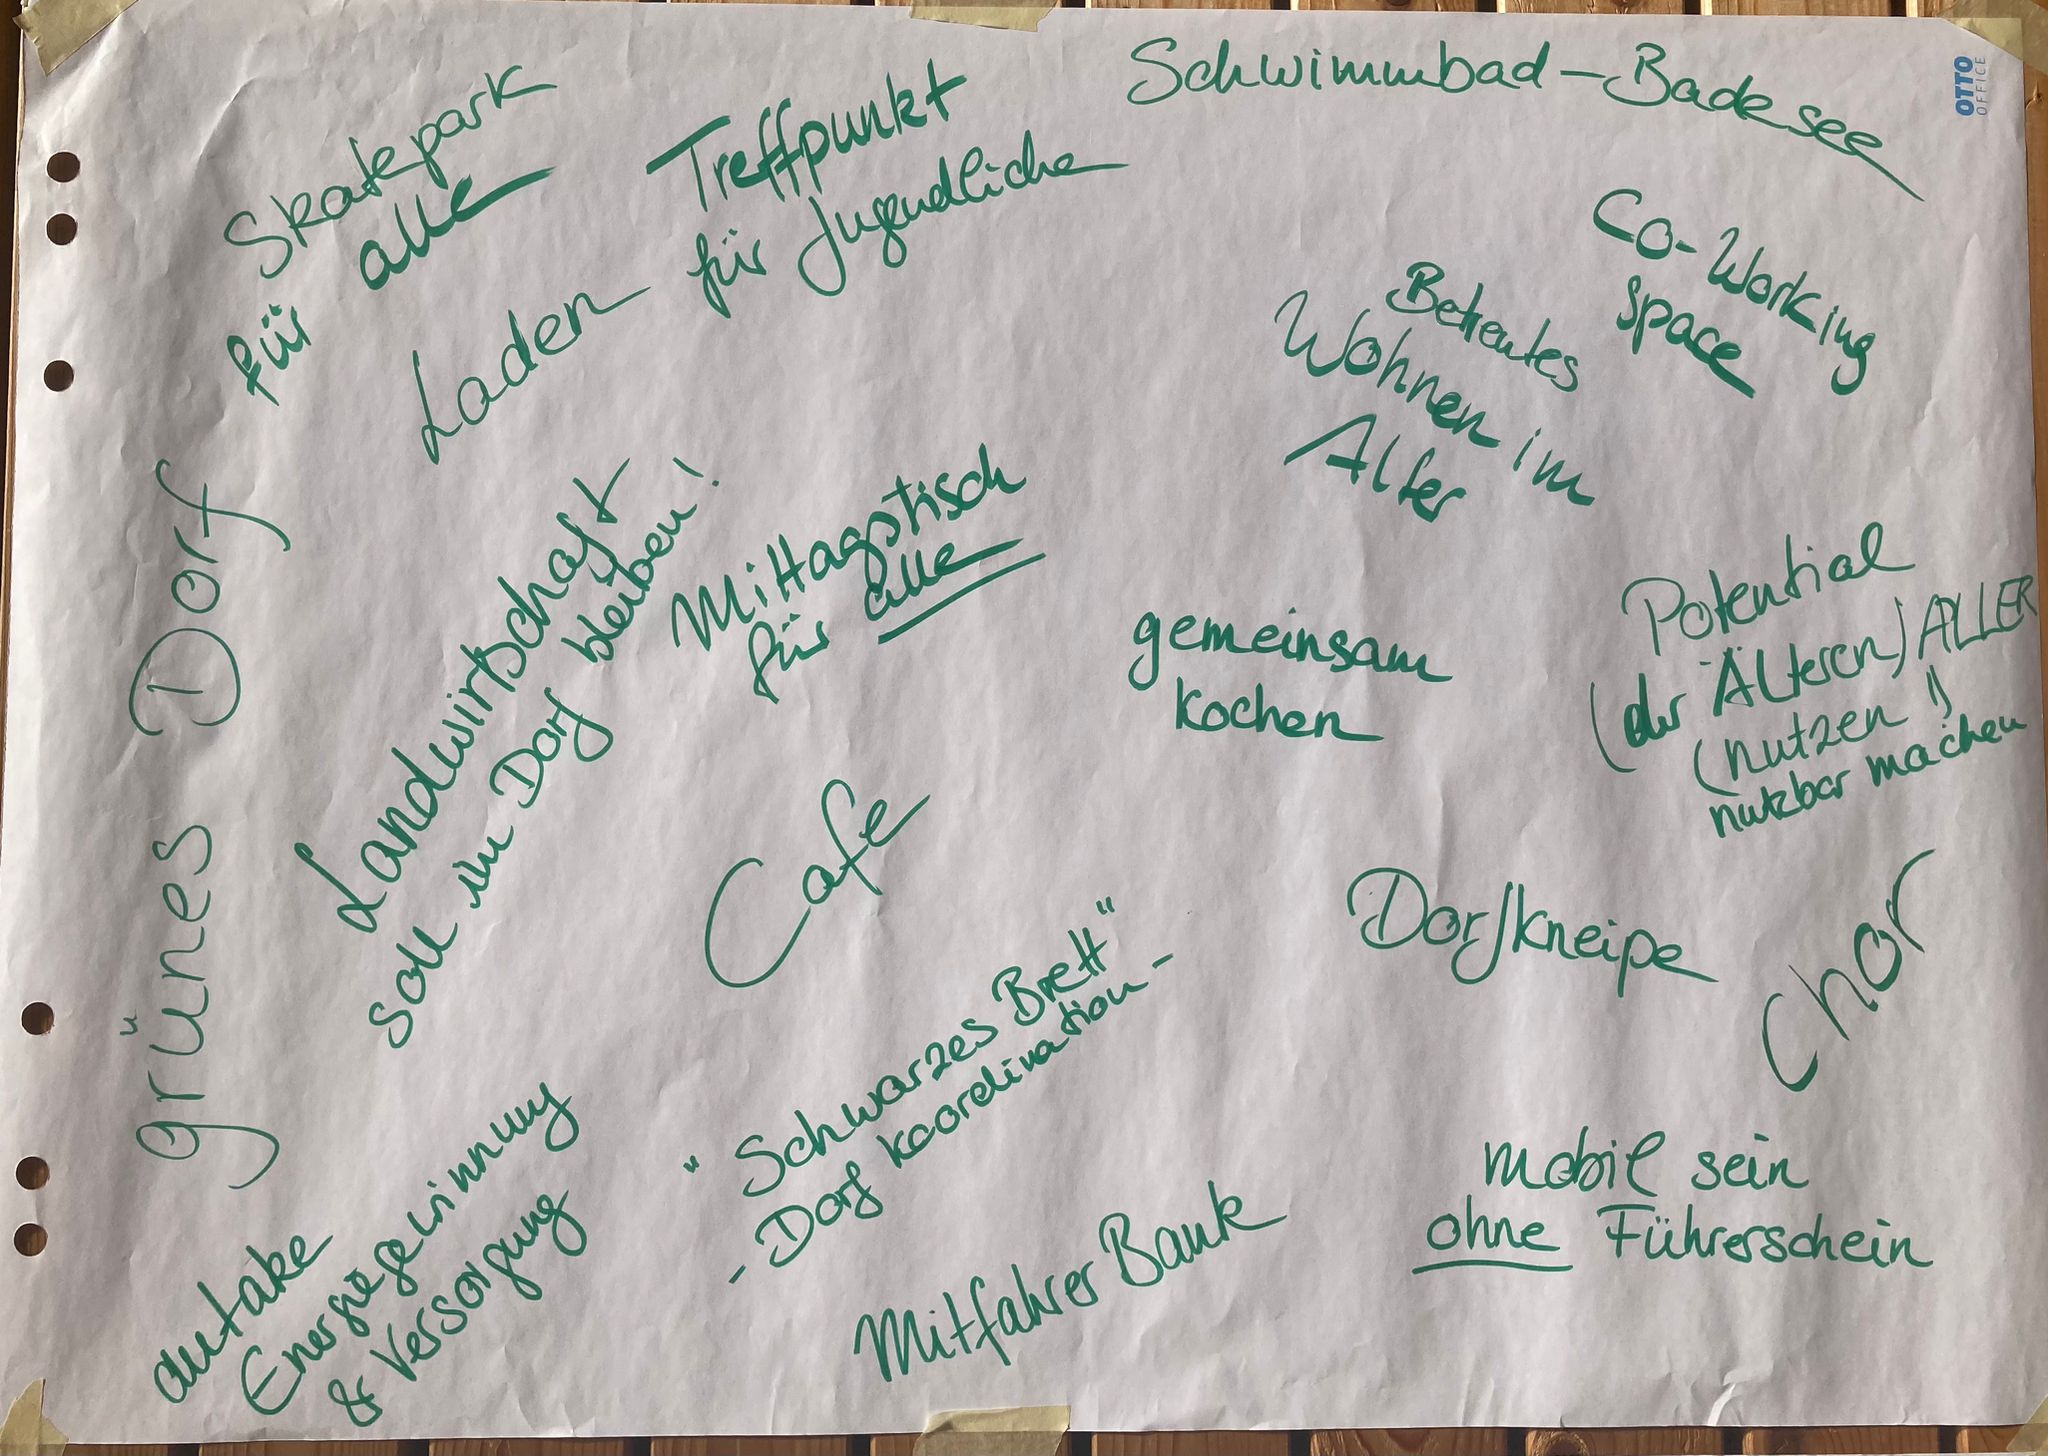 Schwimmbad - Badesee
OTTO
OFFICE
Skatepark
für alle
Treffpunkt
für Jugendliche
Laden
Co-Working
space
Betreutes
Wohnen im
Alter
grünes Dorf
Landwirtschaft
soll im Dorf bleiben!
Mittagstisch
für alle
gemeinsam
kochen
Potential
(der Älteren) ALLER
(nutzen!)
nutzbar machen
Cafe
Dorfkneipe
Chor
"Schwarzes Brett"
- Dorf koordination -
autake
Energiegewinnung
& Versorgung
MitfahrerBank
mobil sein
ohne Führerschein